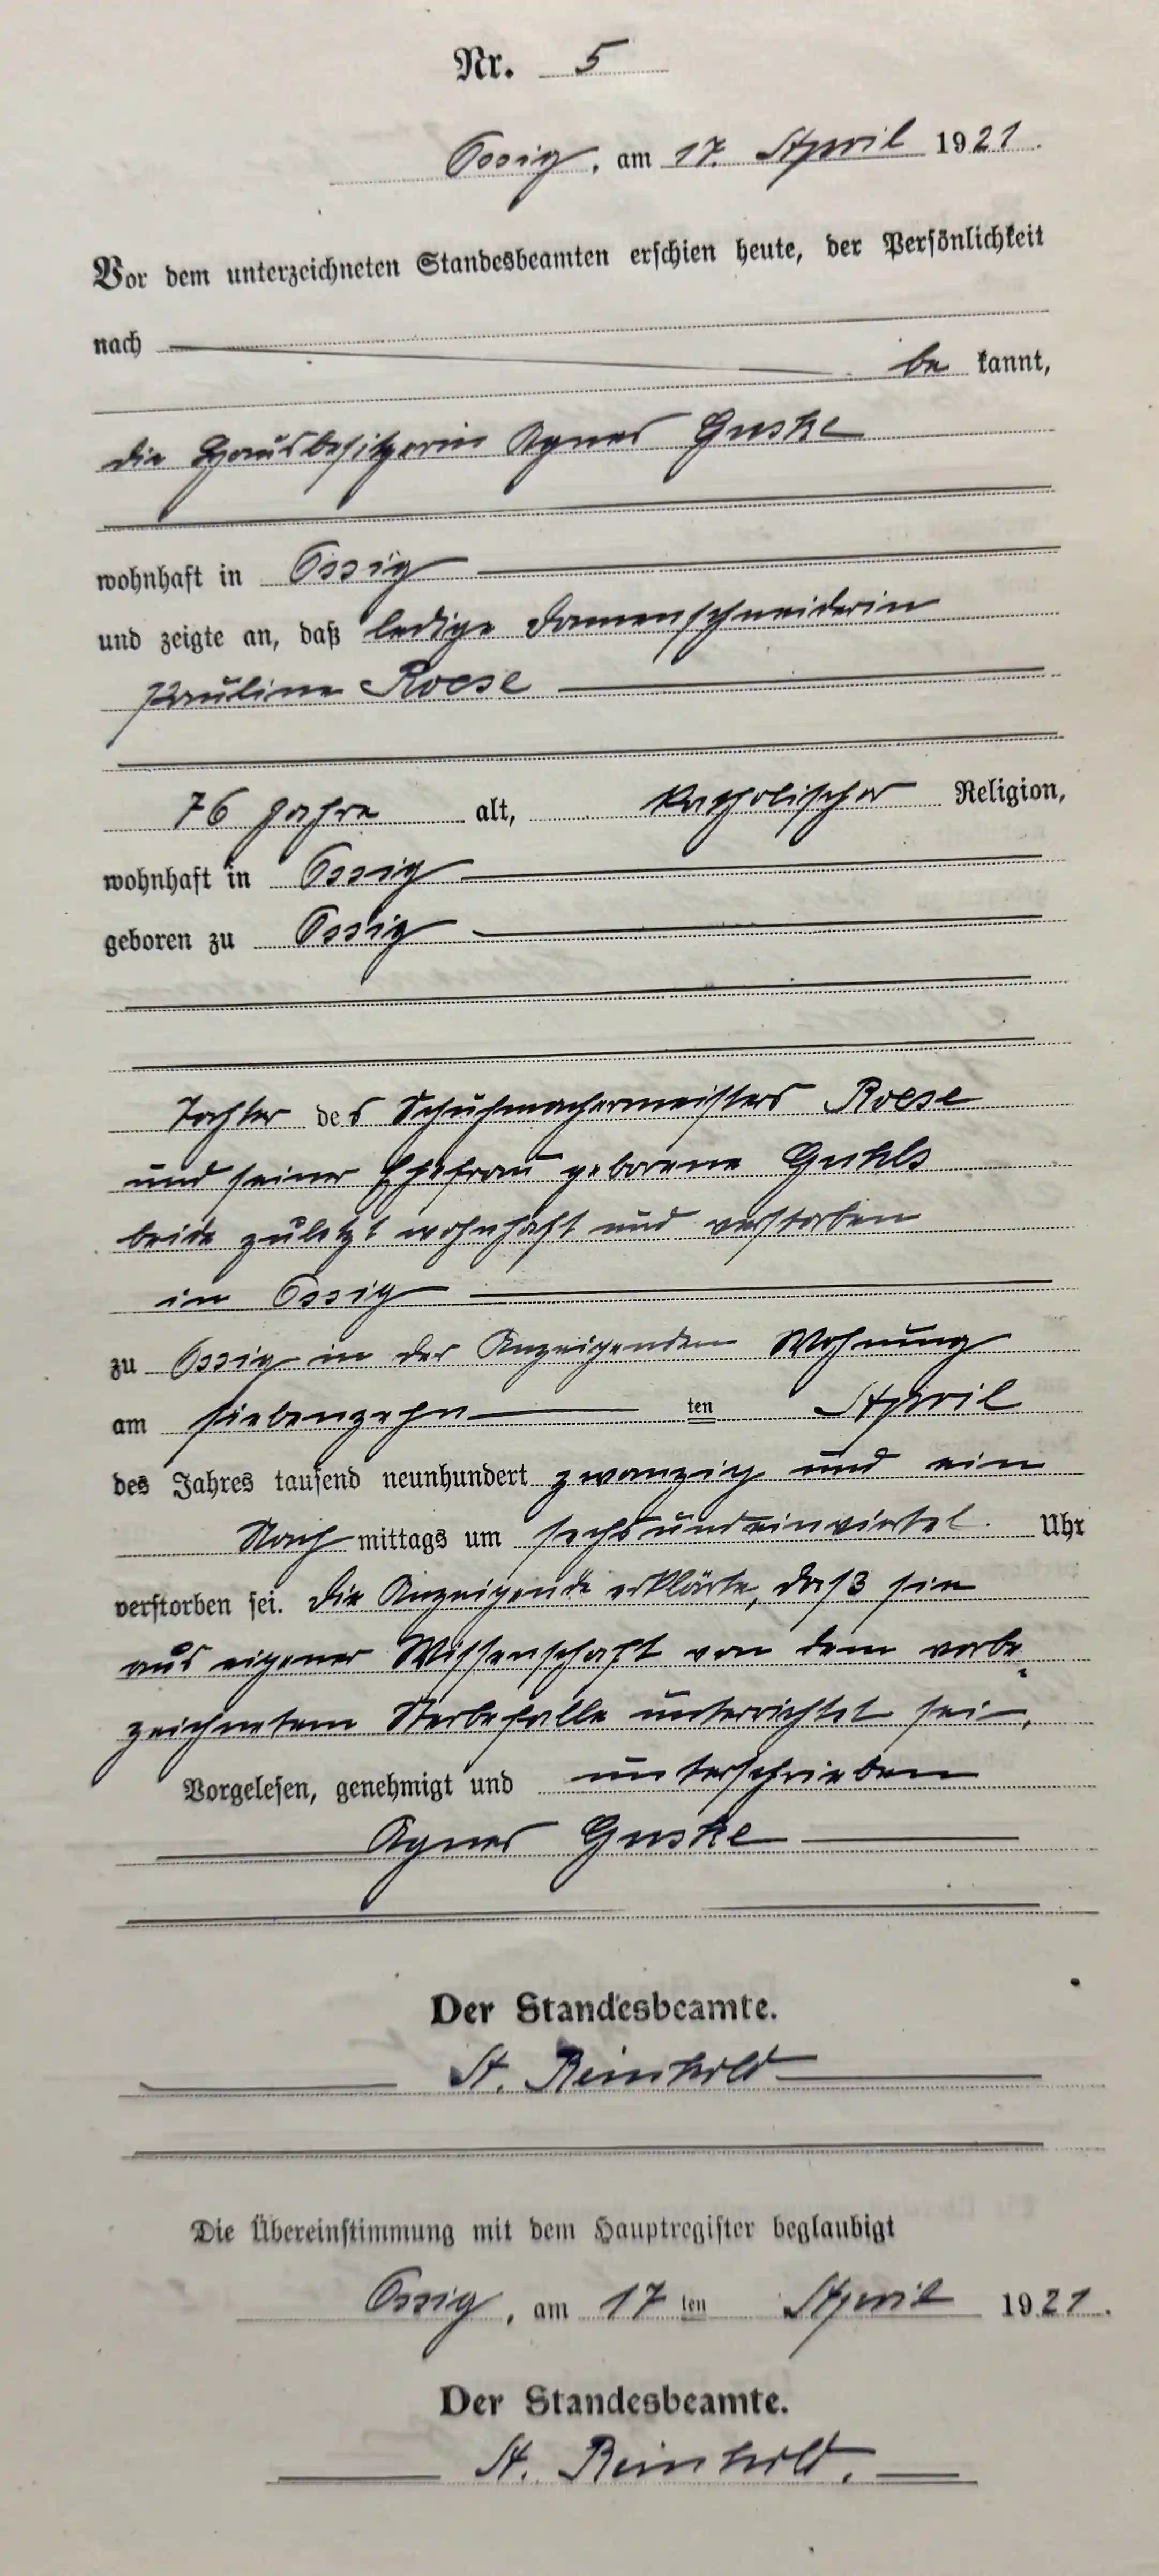 Nr. 5
Ossig, am 17. April 1921.
Vor dem unterzeichneten Standesbeamten erschien heute, der Persönlichkeit
nach
be kannt,
die Hausbesitzerin Agnes Guske
wohnhaft in Ossig
und zeigte an, daß ledige Damenschneiderin
Pauline Roese
76 Jahre alt, katholischer Religion,
wohnhaft in Ossig
geboren zu Ossig
Tochter des Schuhmachermeisters Roese
und seiner Ehefrau geborene
beide zuletzt wohnhaft und verstorben
in Ossig
zu Ossig in der Anzeigenden Wohnung
am siebenzehn ten April
des Jahres tausend neunhundert zwanzig und ein
Nach mittags um sechsundeinviertel Uhr
verstorben sei. Die Anzeigende erklärte, daß sie
aus eigener Wissenschaft von dem vorbe-
zeichnetem Sterbefalle unterrichtet sei.
Vorgelesen, genehmigt und unterschrieben
Agnes Guske
Der Standesbeamte.
A. Reinhold
Die Übereinstimmung mit dem Hauptregister beglaubigt
Ossig, am 17 ten April 1921.
Der Standesbeamte.
A. Reinhold.